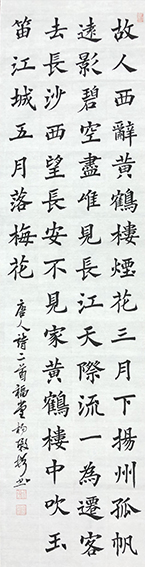 故人西辭黃鶴樓煙花三月下揚州孤帆
遠影碧空盡唯見長江天際流一為遷客
去長沙西望長安不見家黃鶴樓中吹玉
笛江城五月落梅花
唐人詩二首